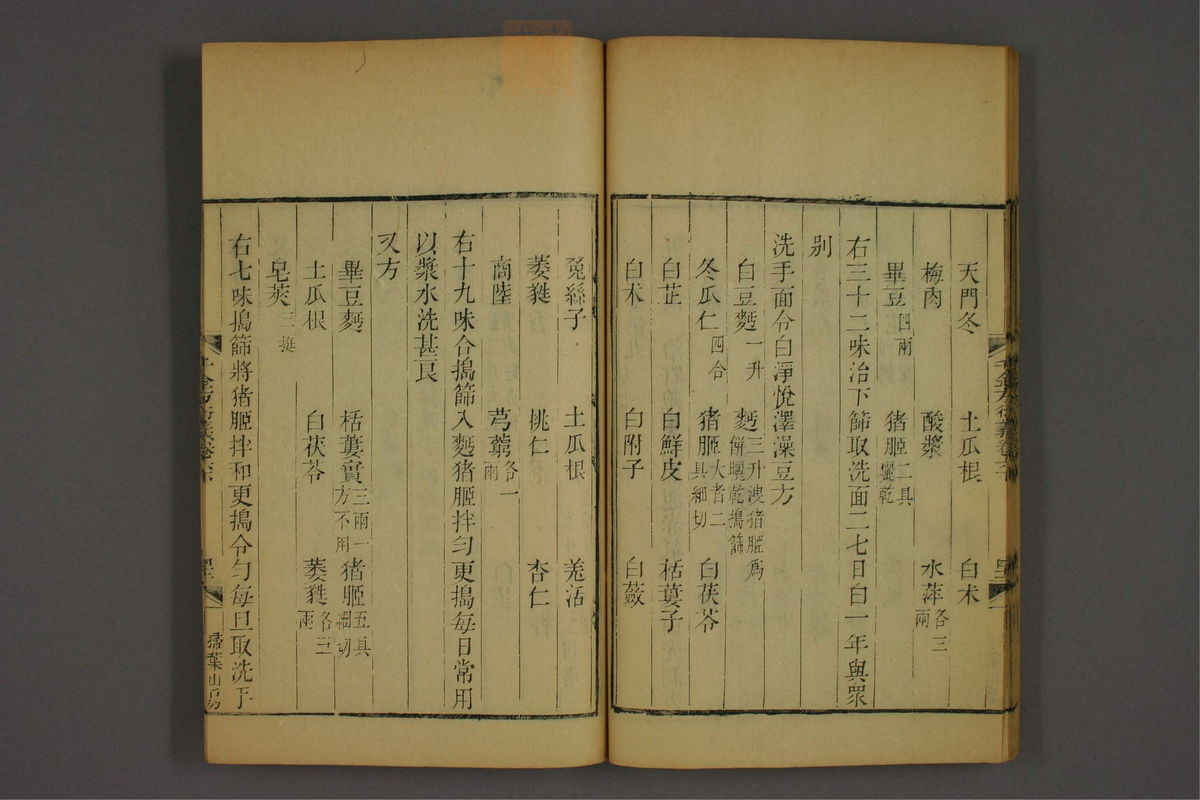 天門冬　土瓜根　白术
梅肉　酸漿　水萍各三兩
畢豆四兩　猪䐗二具曬乾
右三十二味治下篩取洗面二七日白一年與眾
别
洗手面令白淨悅澤澡豆方
白豆麪一升　麪三升溲猪䐗爲餅曬乾搗篩
冬瓜仁四合　猪䐗大者二具細切　白茯苓
白芷　白鮮皮　栝蔞子
白术　白附子　白蘞
兔絲子　土瓜根　羗活
萎蕤　桃仁　杏仁
商陸　芎藭各一兩
右十九味合搗篩入麪猪䐗拌勻更搗每日常用
以漿水洗甚良
又方
畢豆麪　栝蔞實三兩一方不用　猪䐗五具細切
土瓜根　白茯苓　萎蕤各三兩
皂莢三挺
右七味搗篩將猪䐗拌和更搗令勻每旦取洗手
千金方衍義卷
掃葉山房